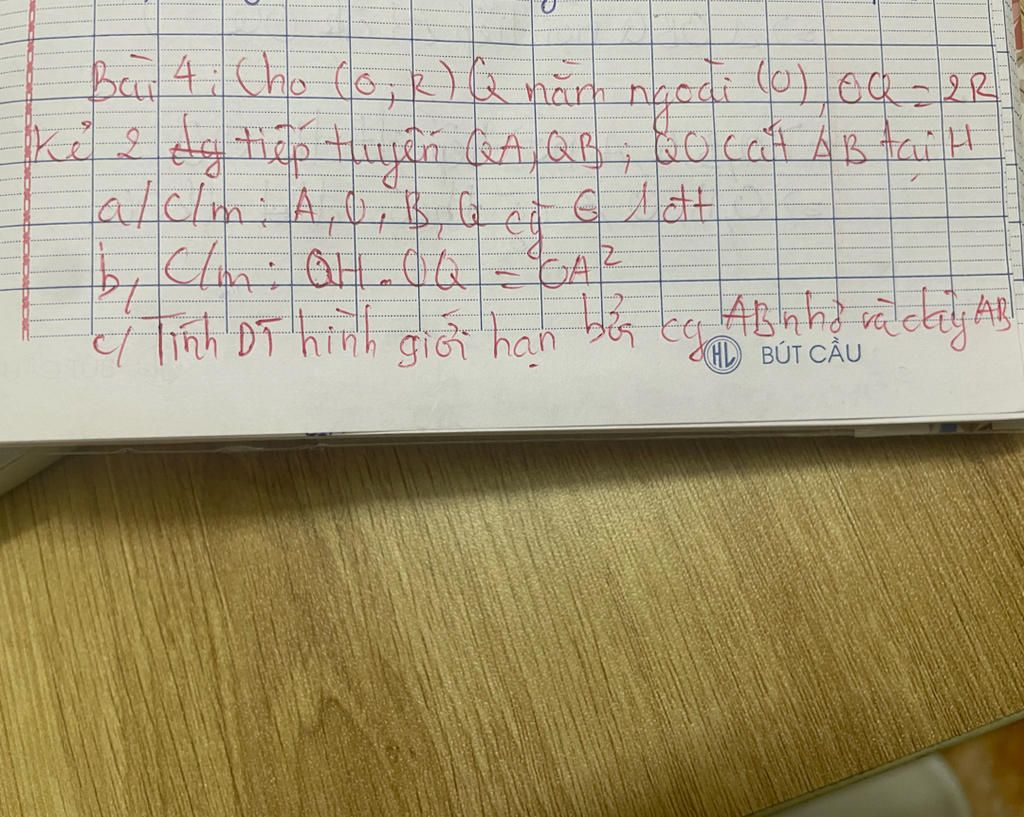 Bài 4: Cho (O, R) Q nằm ngoài (O), OQ = 2R
Kẻ 2 tiếp tuyến QA, QB; QO cắt AB tại H
a/ C/m: A, O, B, Q cg ∈ 1 đt
b, C/m: OH . OQ = OA²
c/ Tính DT hình giới hạn bởi cg AB nhỏ và dây AB
HL BÚT CẦU